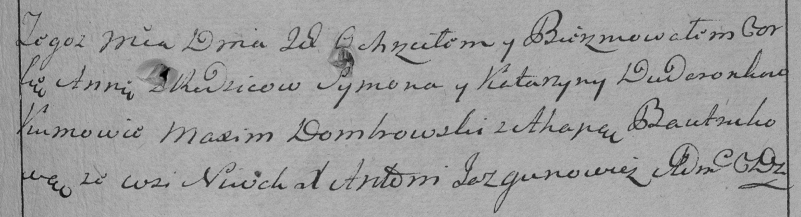 Tegoz Mca Dnia 28 Ochrzciłem y Bierzmowałem Cor
kę Annę z Rodzicow Symona y Katarzyny Duderonkow
Kumowie Maxim Dombrowski z Ahapą Bautruko
wą ze wsi X Antoni Jozgunowicz Adm